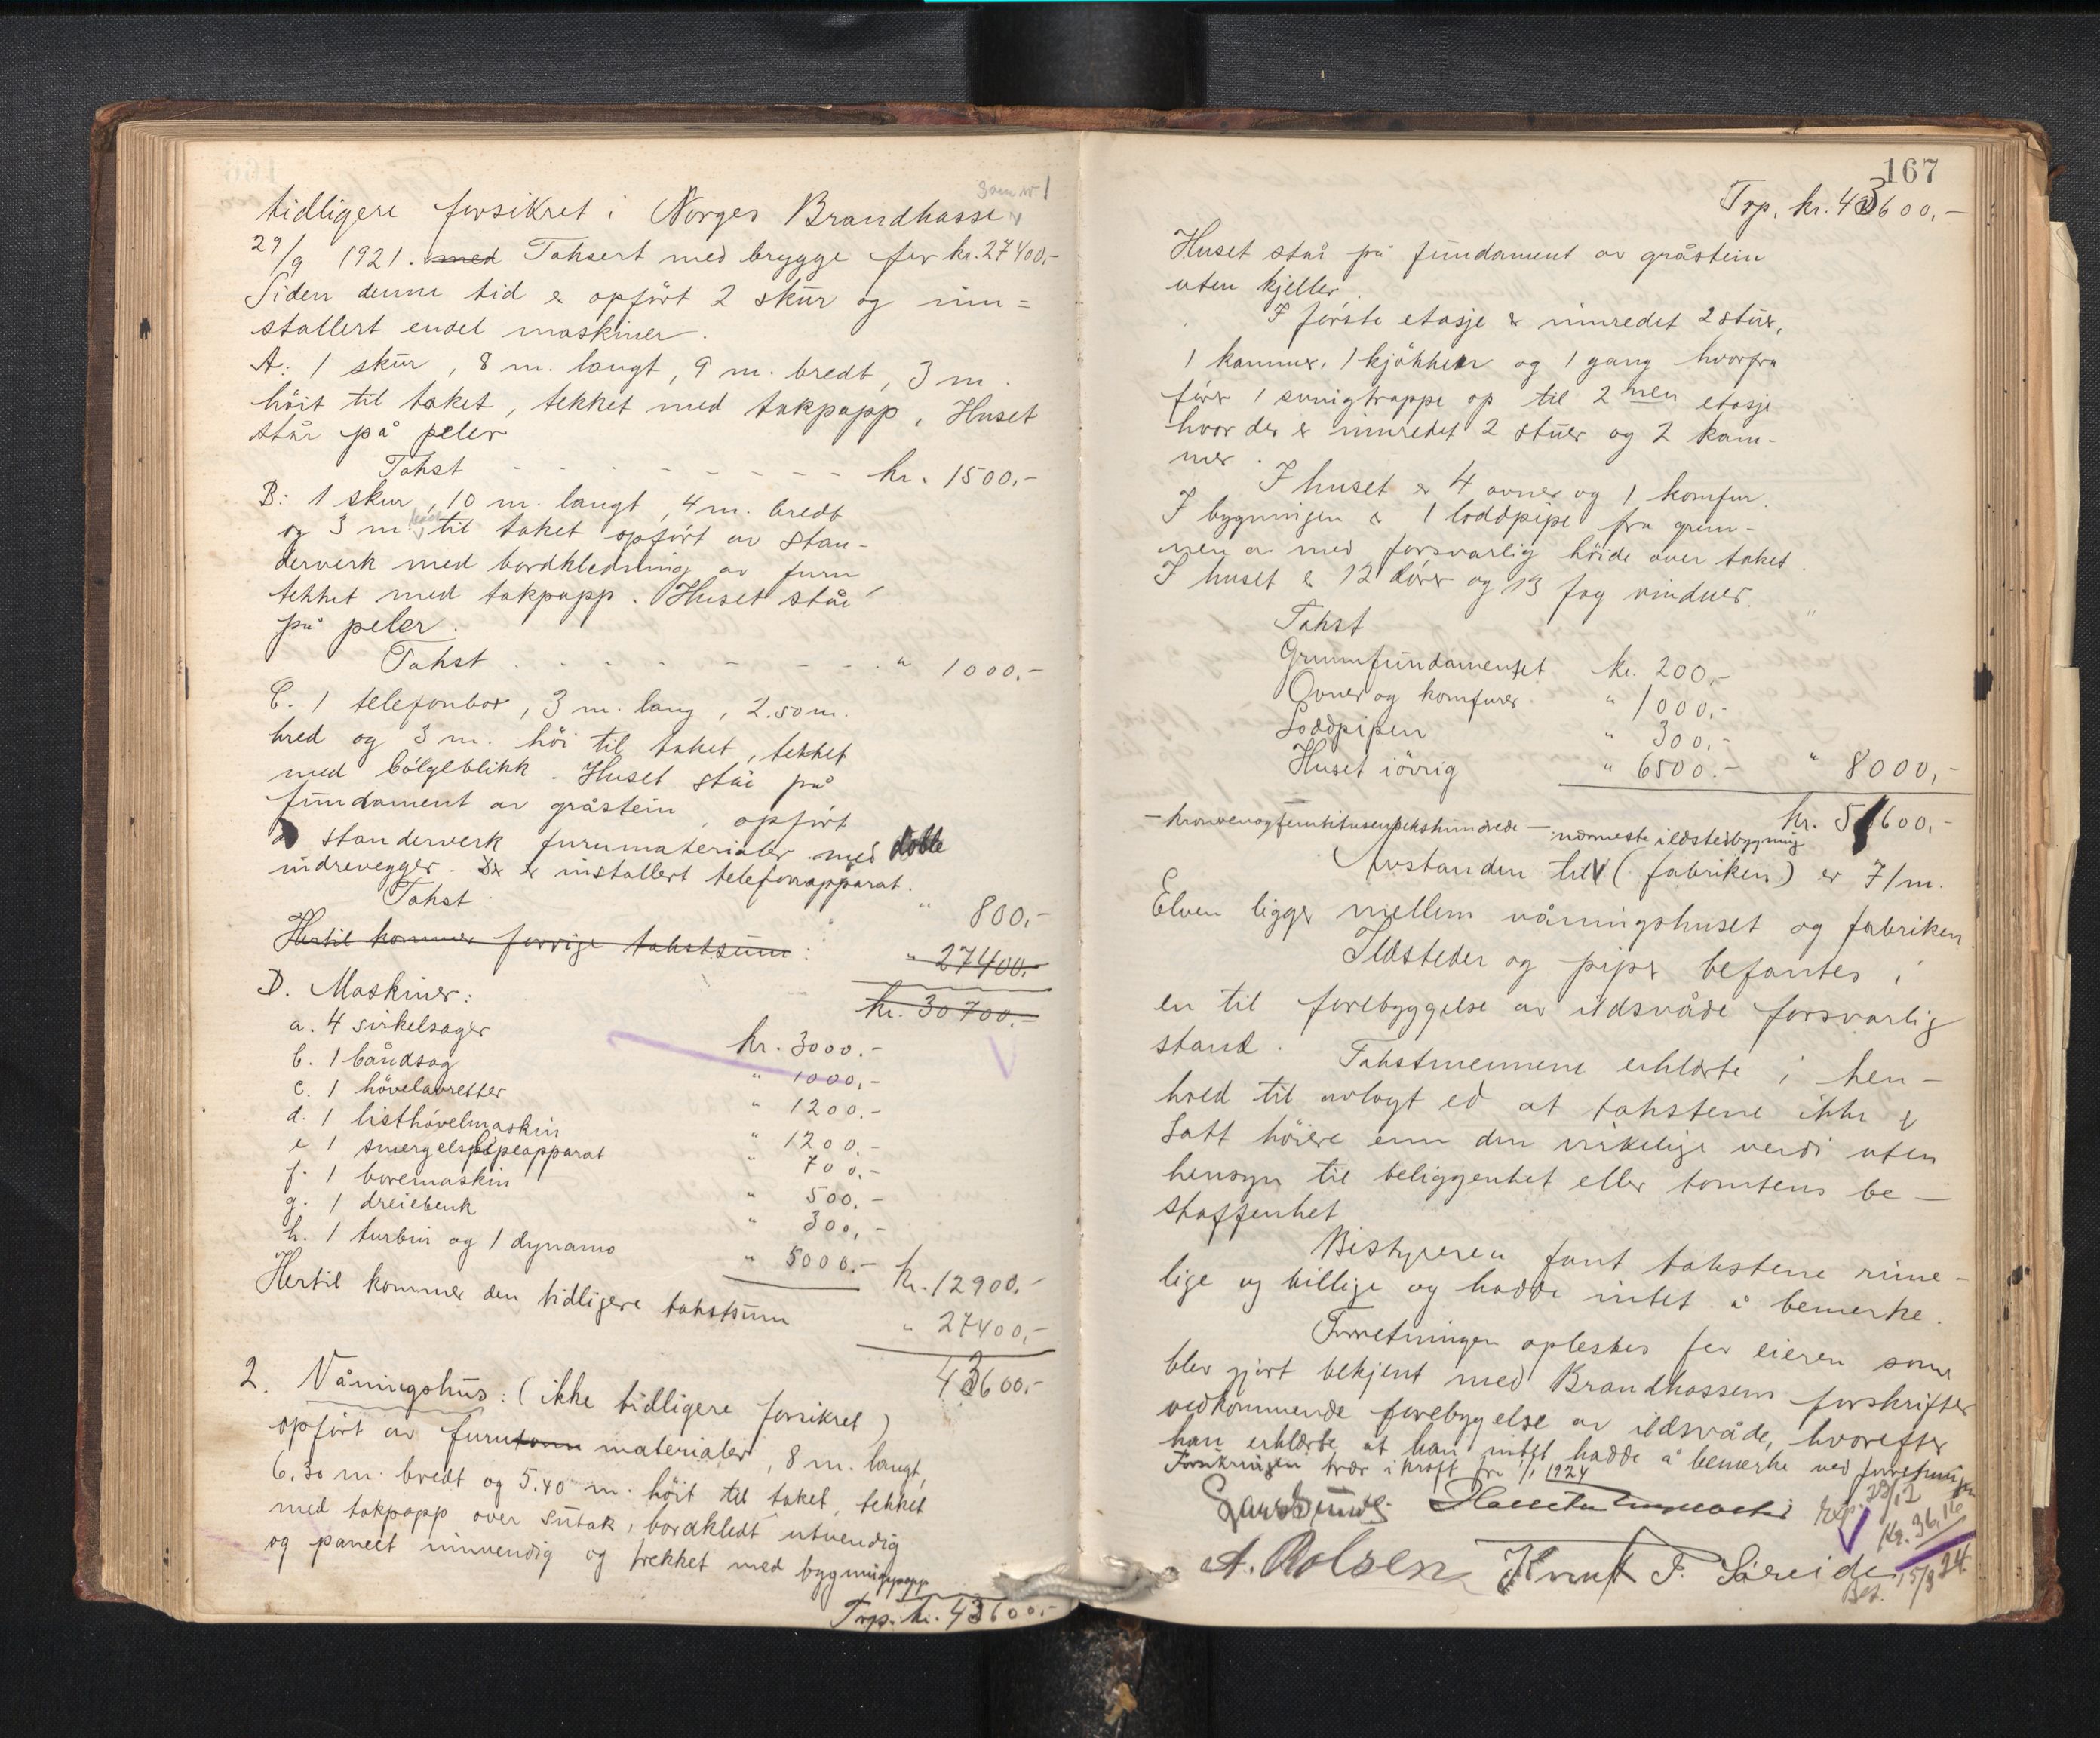 tidligere forsikret i Norges Brandkasse
29/9 1921. med Taksert med brygge for kr. 27400.-
Siden denne tid er opført 2 skur og inn=
stallert endel maskiner.
A: 1 skur, 8 m. langt, 9 m. bredt, 3 m.
höit til taket, tekket med takpapp. Huset
står på peler
Takst - - - - - - - - - kr. 1500.-
B: 1 skur, 10 m. langt, 4 m. bredt
og 3 m. høit til taket opført av stan-
derverk med bordkledning av furu,
tekket med takpapp. Huset står
på peler.
Takst - - - - - - - " 1000.-
C. 1 telefonbox, 3 m. lang, 2.50 m.
bred og 3 m. höi til taket, tekket
med bölgeblikk. Huset står på
fundament av gråstein, opført
a standerverk furumaterialer med doble
indrevegger. Der er installert telefonapparat.
Takst " 800.-
Hertil kommer forrige takstsum: " 27400.-
kr. 30700.-
D. Maskiner:
a. 4 sirkelsager kr. 3000.-
b. 1 båndsag " 1000.-
c. 1 hövelavretter " 1200.-
d. 1 listhövelmaskin " 1200.-
e 1 smergelslipeapparat " 700.-
f. 1 boremaskin " 500.-
g. 1 dreiebenk " 300.-
h. 1 turbin og 1 dynamo " 5000.- kr. 12900.-
Hertil kommer den tidligere takstsum " 27400.-
43600.-
2. Våningshus: (ikke tidligere forsikret)
opført av furu materialer, 8 m. langt,
6.30 m. bredt og 5.40 m. höit til taket, tekket
med takpapp over sutak, bordkledt utvendig
og panelt innvendig og trekket med bygningspapp
Trp. kr. 43600.-
167
Trp. kr. 43600.-
Huset står på fundament av gråstein
uten kjeller.
I første etasje er innredet 2 stuer,
1 kammer, 1 kjökken og 1 gang hvorfra
förer 1 svingtrappe op til 2nen etasje
hvor der er innredet 2 stuer og 2 kam-
mer.
I huset er 4 ovner og 1 komfur.
I bygningen er 1 loddpipe fra grun-
nen av med forsvarlig höide over taket.
I huset er 12 dörer og 13 fag vinduer.
Takst
Grunnfundamentet kr. 200.-
Ovner og komfurer " 1000.-
Loddpipen " 300.-
Huset iövrig " 6500.- " 8000.-
kr. 51600.-
- kronerenogfemtitusensekshundrede - nærmeste ildstedsbygning
Avstanden til (fabriken) er 71 m.
Elven ligger mellem våningshuset og fabriken.
Ildsteder og piper befantes i
en til forebyggelse av ildsvåde forsvarlig
stand. Takstmennene erklærte i hen-
hold til avlagt ed at takstene ikke er
satt höiere enn den virkelige verdi uten
hensyn til beliggenhet eller tomtens be-
skaffenhet
Bestyreren fant takstene rime-
lige og billige og hadde intet å bemerke.
Forretningen oplestes for eieren som
blev gjort bekjent med Brandkassens forskrifter
vedkommende forebyggelse av ildsvåde, hvorefter
han erklærte at han intet hadde å bemerke ved forretningen
Forsikringen trær i kraft fra 1/1 1924
Exp. 29/12
Kr. 36.16
A. Rolsen Knut P. Søreide
Bet. 15/3 24.